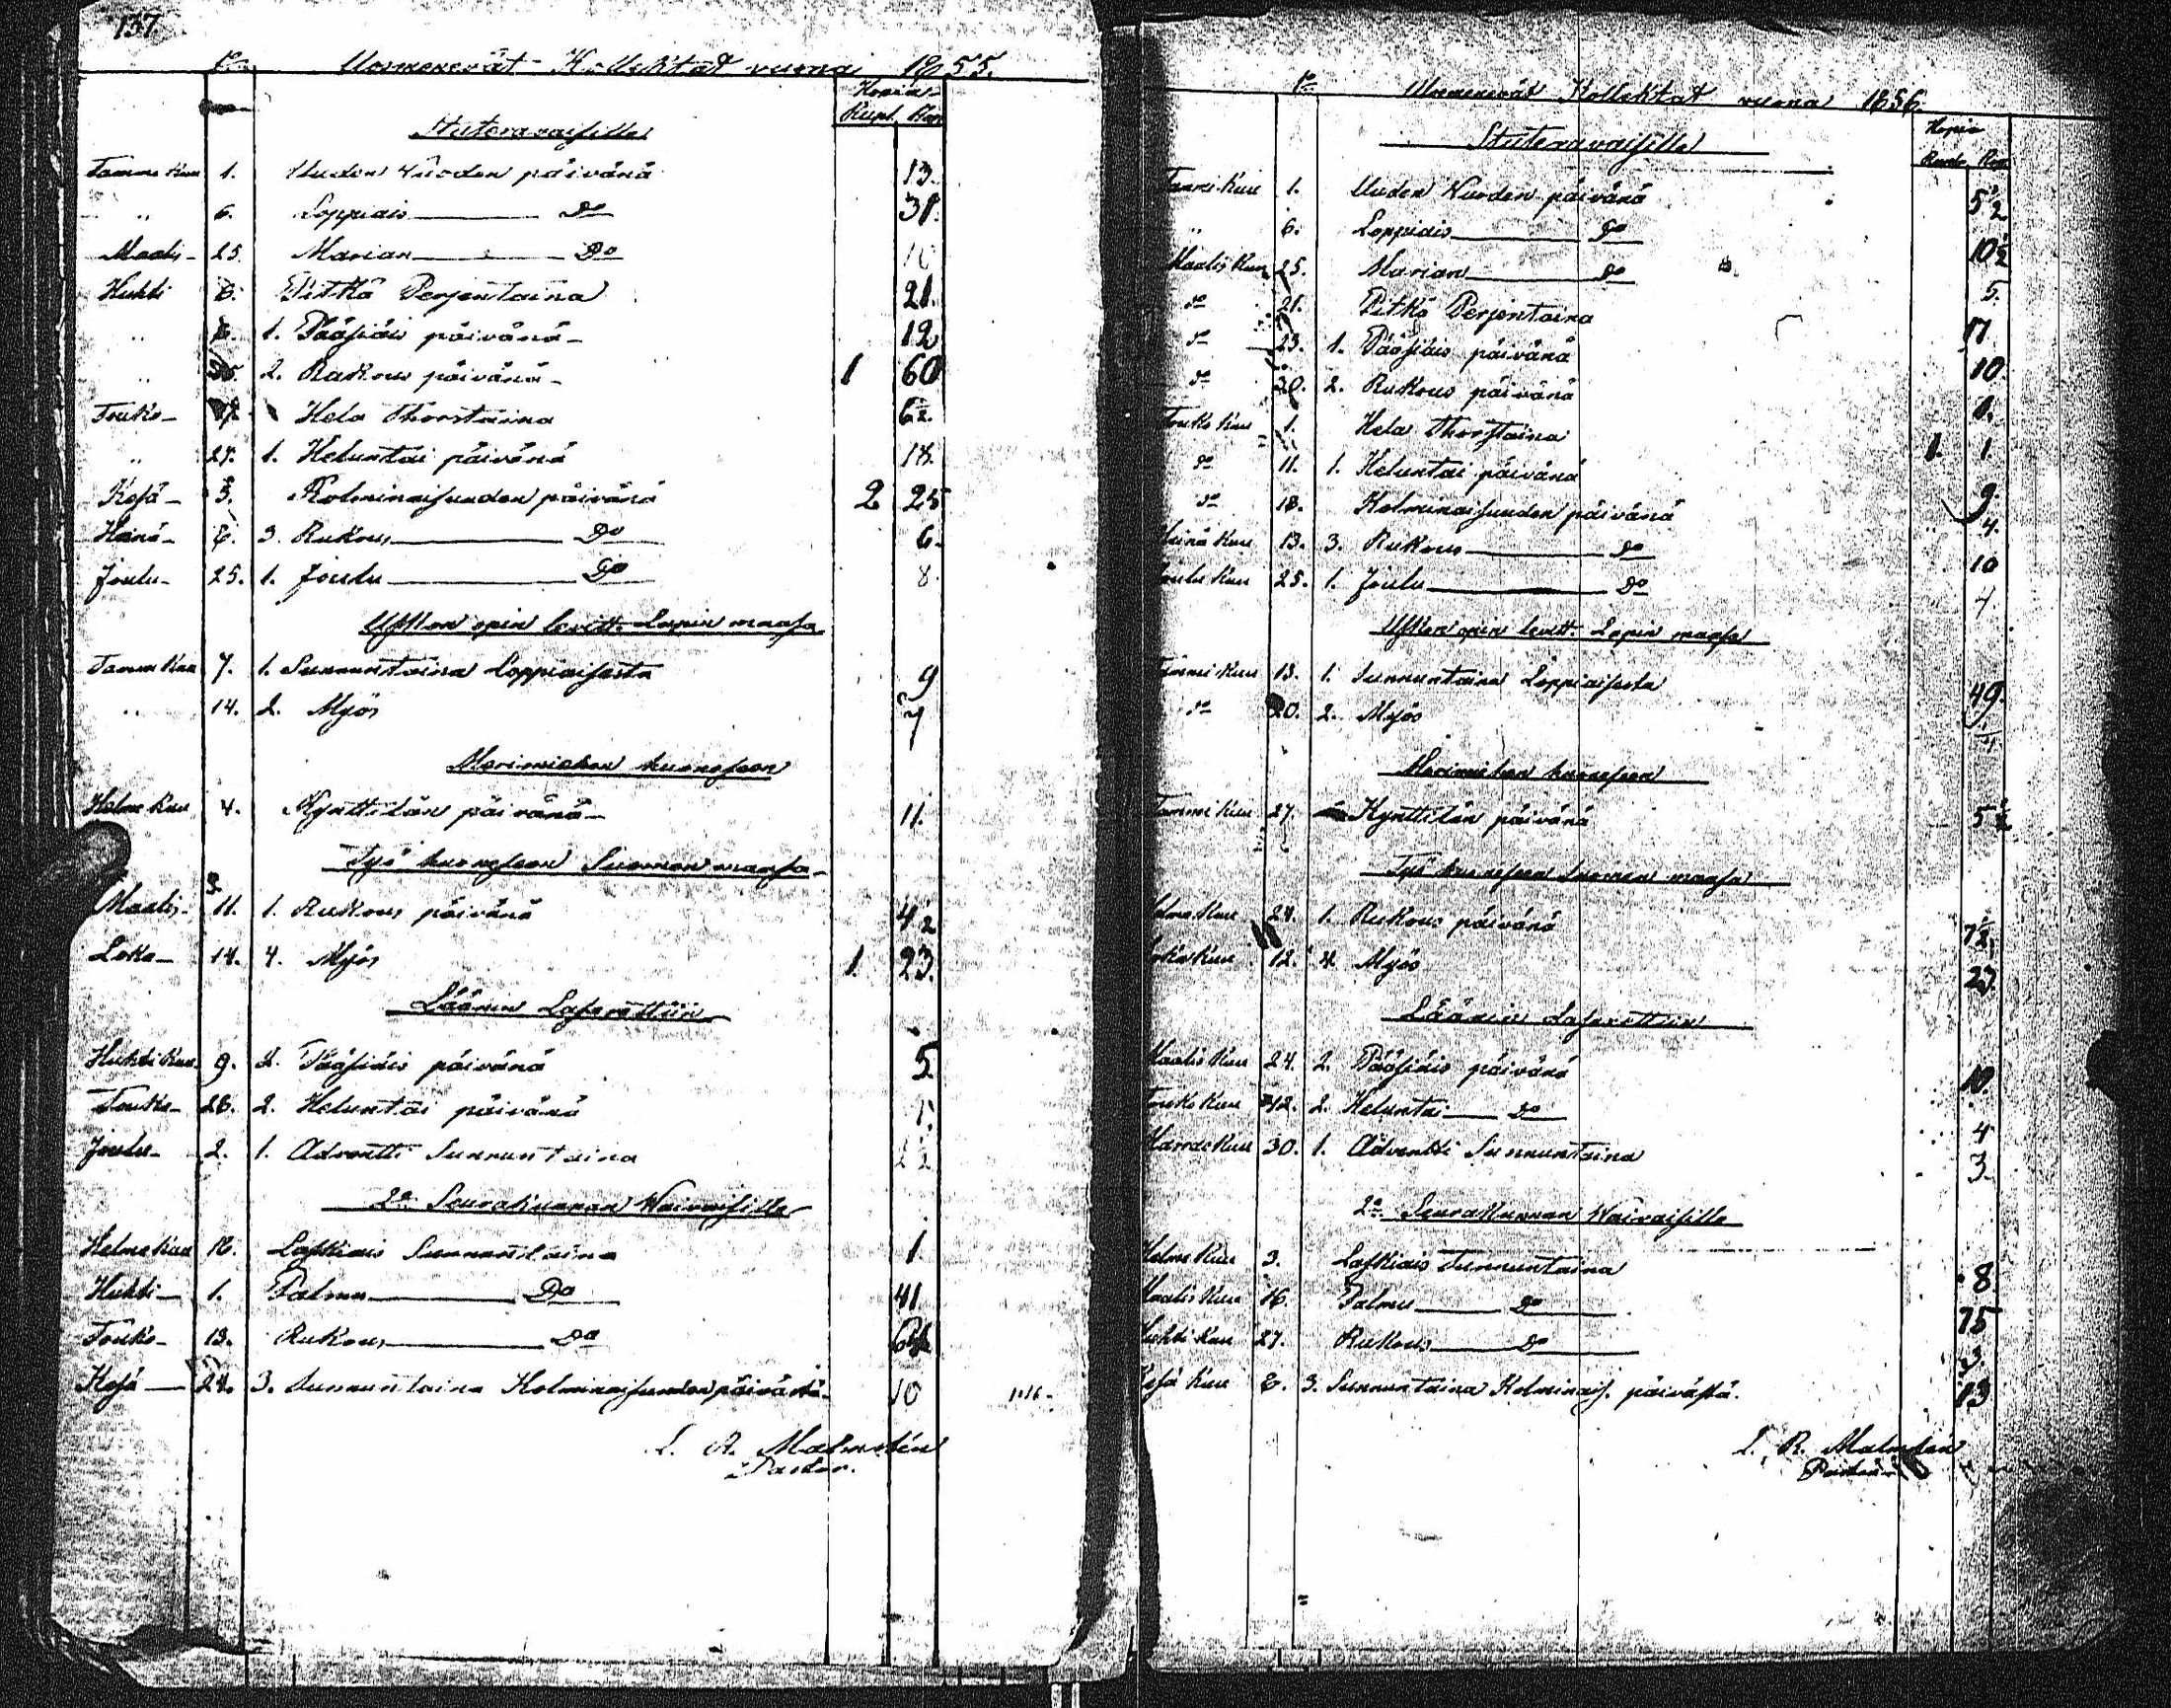 137
1o Ulosmenevät Kollektat vuona 1855.
Hopia
Rupl. Kop.
Stuteravaisille
Tammi Kuu 1. Uuden Wuoden päivänä 13.
" 6. Loppiais Do 31.
Maalis 25. Marian Do 10
Huhti 6. Pitkä Perjentaina 21.
" 8. 1. Pääsiäis päivänä 12
" 2. Rukous päivänä 1 60
Touko Hela Thorstaina
" 27. 1. Heluntai päivänä 18.
Kesä 3. Kolminaisuuden päivänä 2 25
Heinä 8. 3. Rukous Do 6.
Joulu 25. 1. Joulu Do 8.
Uskon opin levitt. Lapin maasa
Tammi Kuu 7. 1. Sunnuntaina Loppiaisesta 9
" 14. 2. Myös 7
Merimiesten huoneseen
Helmi Kuu 4. Kynttilän päivänä 11.
Työ huoneseen Suomen maasa
Maalis 11. 1. Rukous päivänä
Loka 14. 4. Myös 1. 23.
Läänin Lasarettiin
Huhti Kuu 9. 2. Pääsiäis päivänä 5
Touko 28. 2. Heluntai päivänä
Joulu 2. 1. Adventti Sunnuntaina
2o Seurakunnan Waivaisille
Helmi Kuu 18. Laskiais Sunnuntaina 1.
Huhti 1. Palmu Do 41
Touko 13. Rukous Do
Kesä 24. 3. Sunnuntaina Kolminaisuuden päivästä 10
L. A. Malmstén
Pastor.
1o Ulosmenevät Kollektat vuona 1856.
Hopia
Rupl. Kop.
Stuteravaisille
Tammi Kuu 1. Uuden Wuoden päivänä 5½
" 6. Loppiais Do 10½
Maalis Kuu 25. Marian Do 5.
do 21. Pitkä Perjentaina 17
do 23. 1. Pääsiäis päivänä 10
do 30. 2. Rukous päivänä
Touko Kuu 1. Hela Thorstaina 1. 1.
do 11. 1. Heluntai päivänä 9.
do 18. Kolminaisuuden päivänä 4.
Heinä Kuu 13. 3. Rukous Do 10
Joulu Kuu 25. 1. Joulu Do 4.
Uskon opin levitt. Lapin maasa
Tammi Kuu 13. 1. Sunnuntaina Loppiaisesta 49.
do 20. 2. Myös
Merimiesten huoneseen
Tammi Kuu 27. Kynttilän päivänä 5½
Työ huoneseen Suomen maasa
Helmi Kuu 24. 1. Rukous päivänä 7½
Loka Kuu 12. 4. Myös 23.
Läänin Lasarettiin
Maalis Kuu 24. 2. Pääsiäis päivänä 10.
Touko Kuu 12. 2. Heluntai Do 4
Marras Kuu 30. 1. Adventti Sunnuntaina 3.
2o Seurakunnan Waivaisille
Helmi Kuu 3. Laskiais Sunnuntaina 8.
Maalis Kuu 16. Palmu Do 75
Huhti Kuu 27. Rukous Do 3.
Kesä Kuu 8. 3. Sunnuntaina Kolminais. päivästä. 13
L. A. Malmstén
Pastor